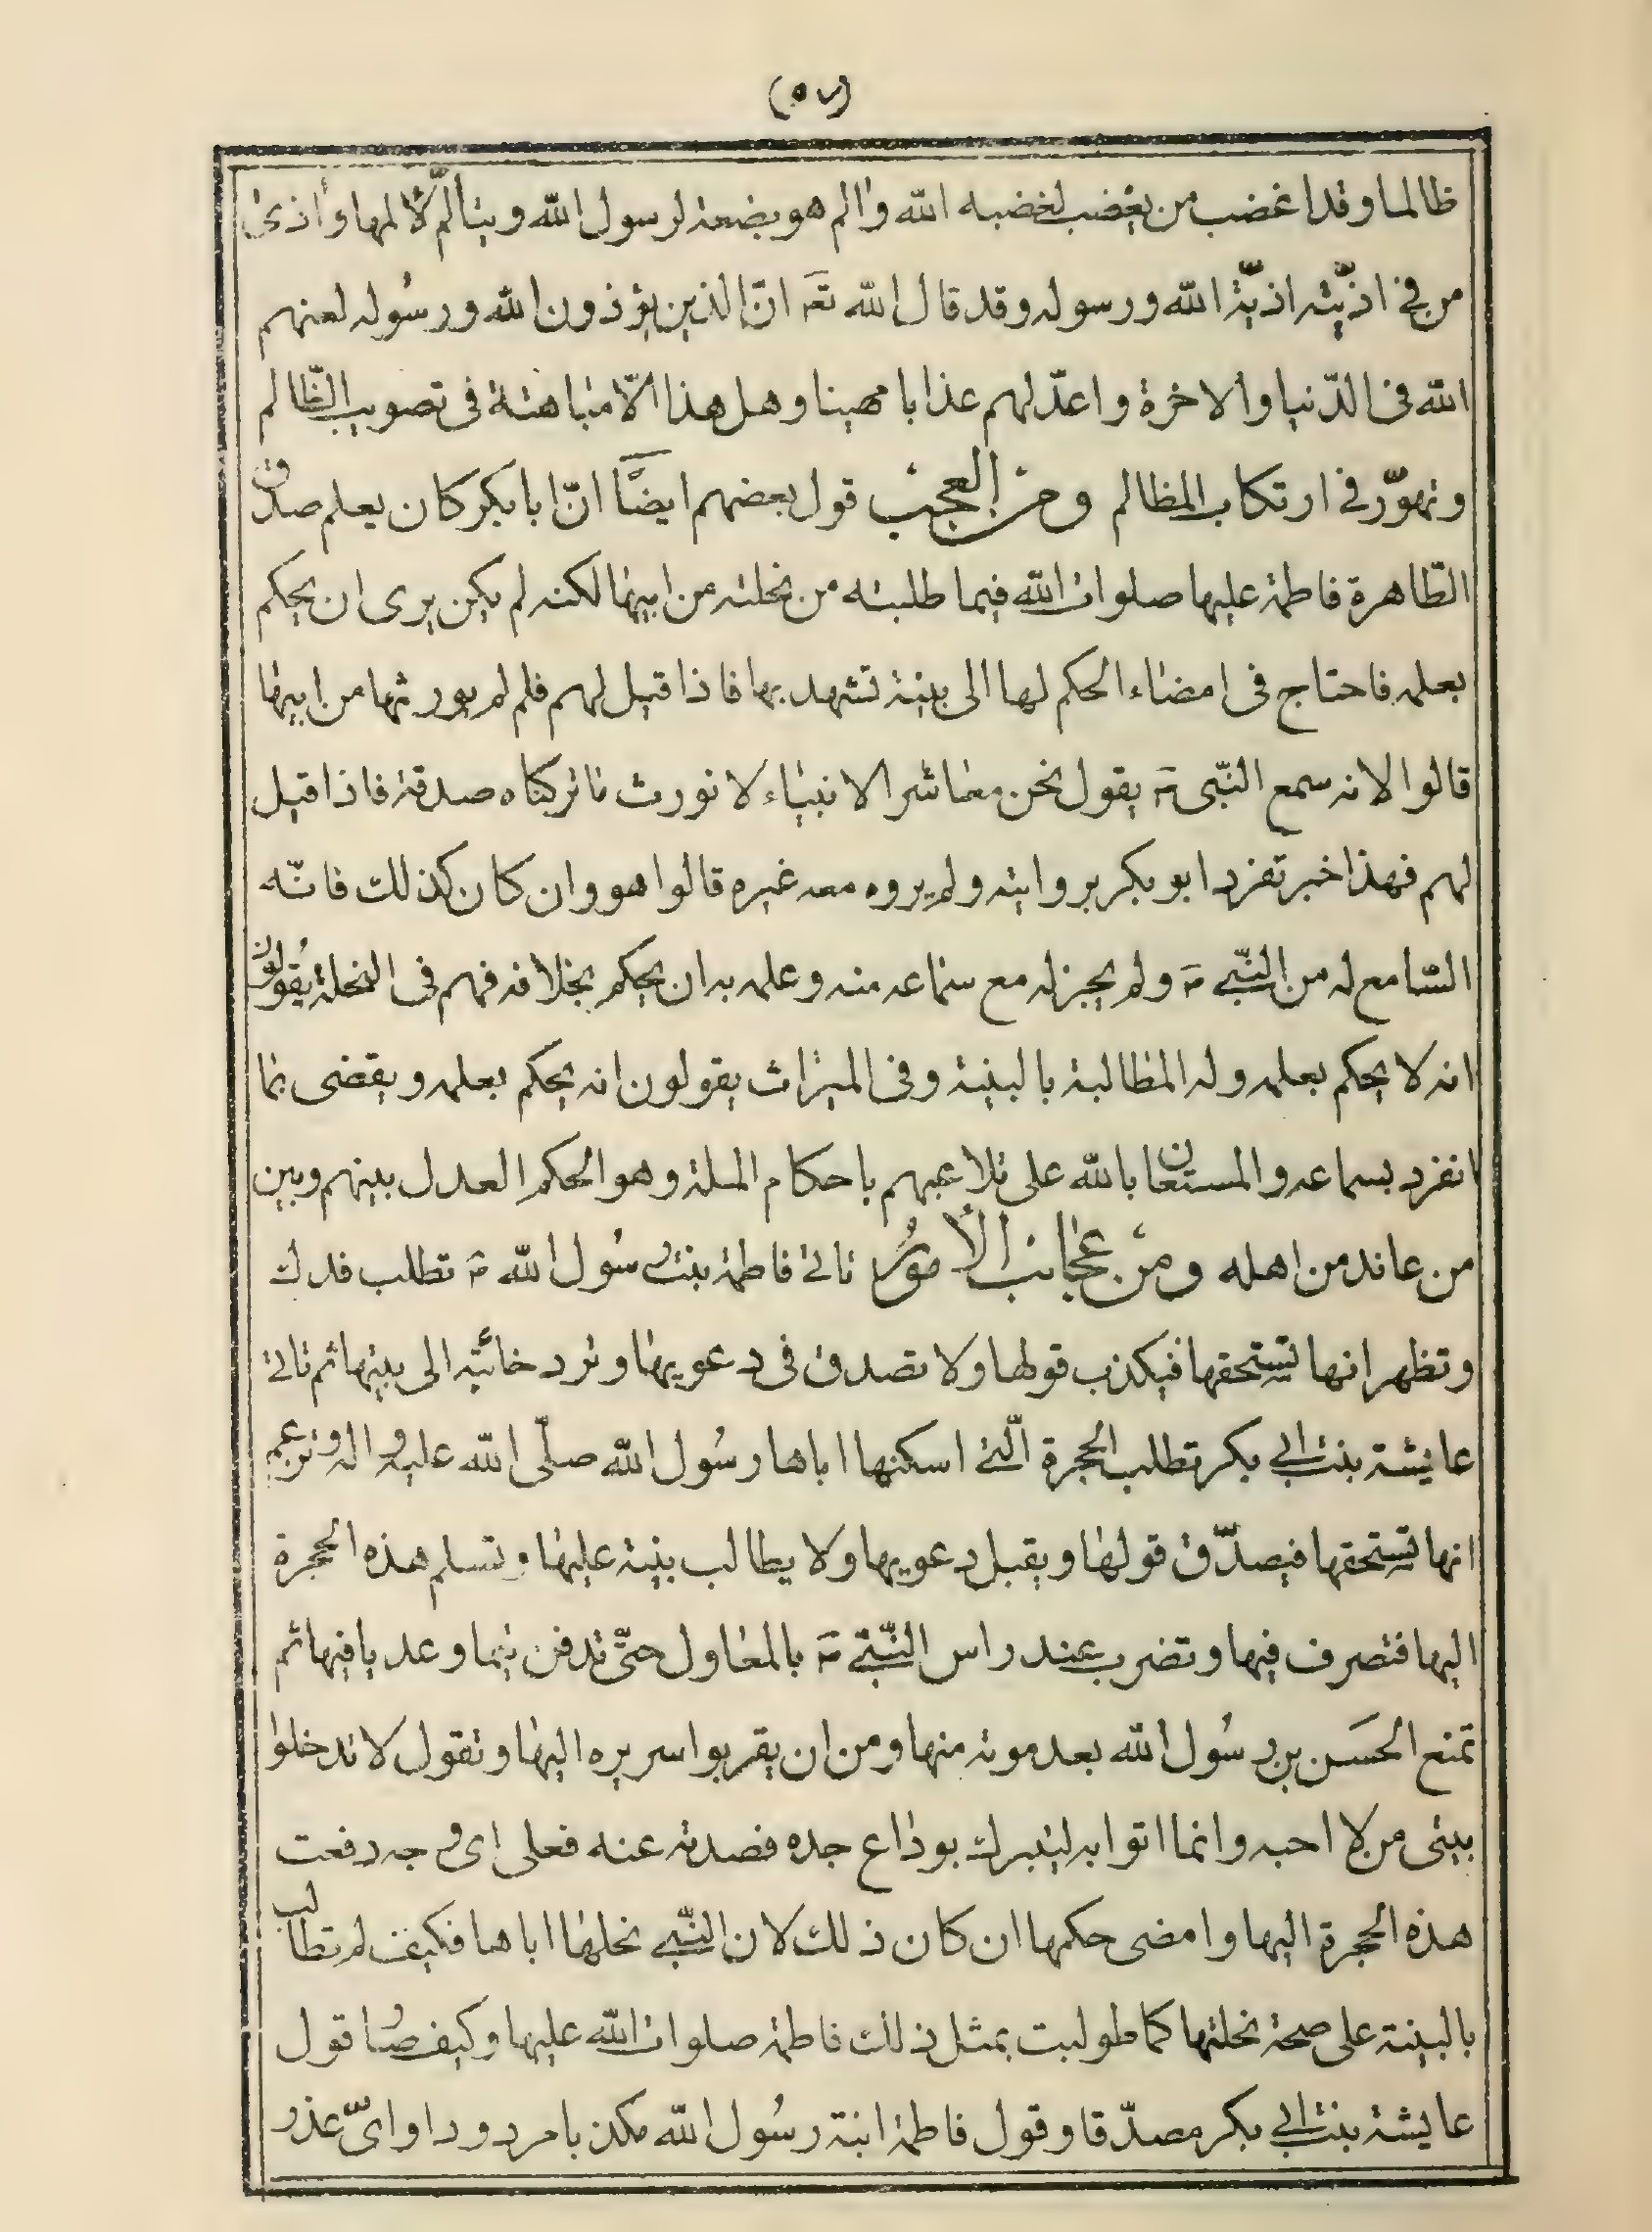 (٥٧)
ظالما وقد اغضب من يغضب لغضبه الله والم هو بضعة لرسول الله ويتألم لآلامها وأذى
من فى اذيّته اذيّة الله ورسوله وقد قال الله تعَ انّ الذين يؤذون الله ورسُوله لعنهم
الله فى الدّنيا والاخرة واعدّ لهم عذابا مهينا وهل هذا الّا مباهتة فى تصويب الظّالم
وتهوّر فى ارتكاب المظالم ومن العجب قول بعضهم ايضًا انّ ابا بكر كان يعلم صدق
الطّاهرة فاطمة عليها صلوات الله فيما طلبته من نحلته من ابيها لكنه لم يكن يرى ان يحكم
بعلمه فاحتاج فى امضاء الحكم لها الى بينة تشهد بها فاذا قيل لهم فلم لم يورثها من ابيها
قالوا لانه سمع النّبى صَ يقول نحن معاشر الانبياء لا نورث ما تركناه صدقة فاذا قيل
لهم فهذا خبر تفرد ابو بكر بروايته ولم يروه معه غيره قالوا هو وان كان كذلك فانّه
السّامع له من النّبى صَ ولم يجز له مع سماعه منه وعلمه به ان يحكم بخلافه فهم فى النحلة يقُولون
انه لا يحكم بعلمه وله المطالبة بالبينة وفى الميراث يقولون انه يحكم بعلمه ويقضى بما
انفرد بسماعه والمستعان بالله على تلاعبهم باحكام الملة وهو الحكم العدل بينهم وبين
من عاند من اهله ومن عجائب الأمور تاتى فاطمة بنت رسُول الله صَ تطلب فدك
وتظهر انها تستحقها فيكذب قولها ولا تصدق فى دعويها وترد خائبة الى بيتها ثم تاتى
عايشة بنت ابى بكر تطلب الحجرة الّتى اسكنها اياها رسُول الله صلّى الله عليه واله وتزعم
انها تستحقها فيصدّق قولها ويقبل دعويها ولا يطالب بينة عليها وتسلم هذه الحجرة
اليها فتصرف فيها وتضرب عند راس النّبى صَ بالمعاول حتّى تدفن تيما وعديا فيها ثم
تمنع الحسَن بن رسُول الله بعد موته منها ومن ان يقربوا سريره اليها وتقول لا تدخلوا
بيتى من لا احبه وانما اتوا به ليتبرك بوداع جده فصدته عنه فعلى اى وجه دفعت
هذه الحجرة اليها وامضى حكمها ان كان ذلك لان النّبى نحلها اياها فكيف لم تطالب
بالبينة على صحة نحلتها كما طولبت بمثل ذلك فاطمة صلوات الله عليها وكيف صُا قول
عايشة بنت ابى بكر مصدّقا وقول فاطمة ابنة رسُول الله مكذبا مردودا واىّ عذر